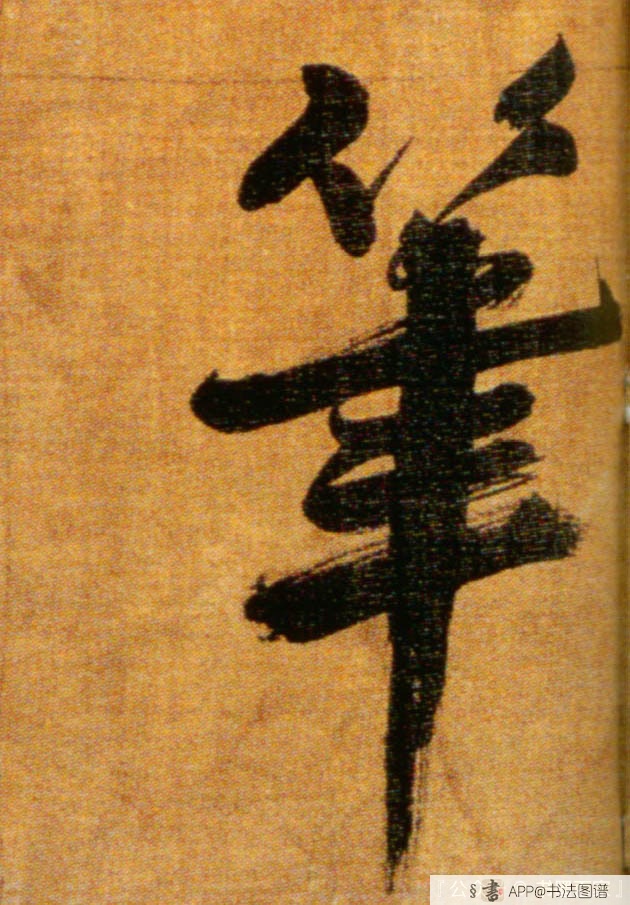 筆
§書 APP@书法图谱